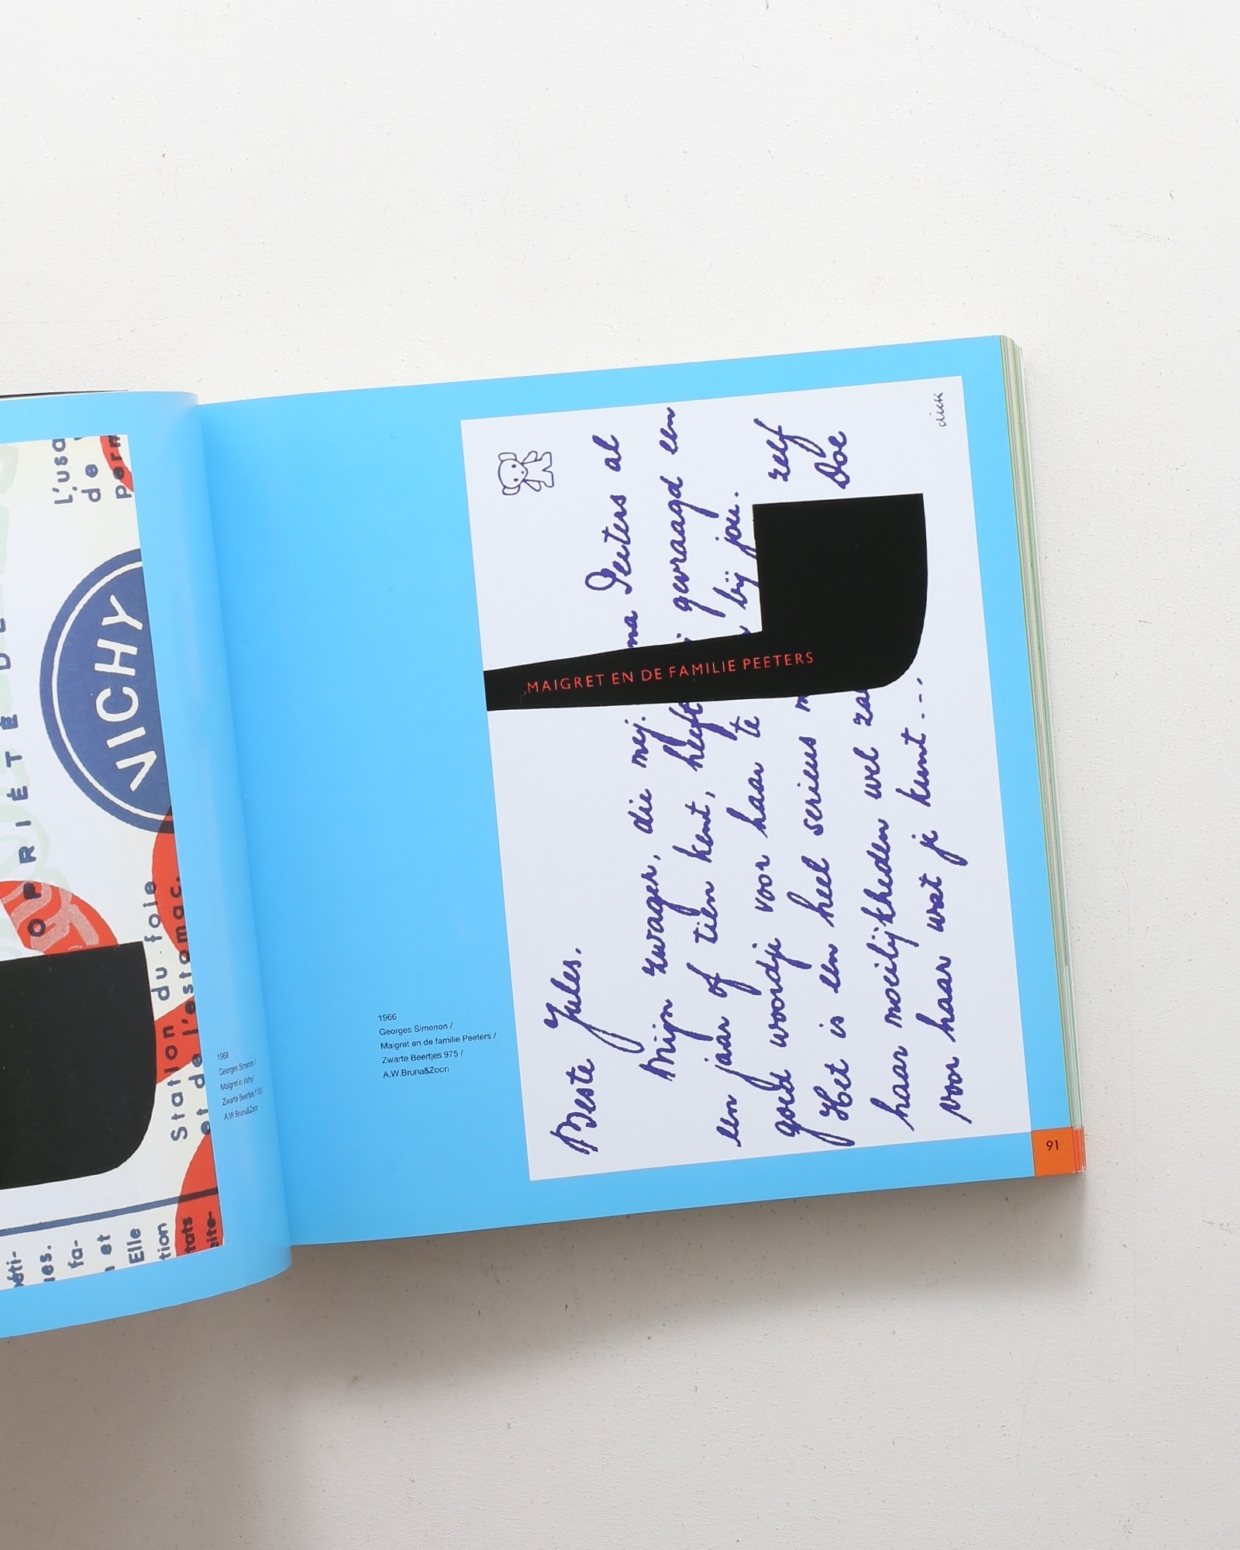 L'usa
de
perm
VICHY
OPRIÉTÉ DE
Station du foie
et de l'estomac.
ues.
fa-
et
Elle
tion
tats
1968
Georges Simenon /
Maigret in Vichy /
Zwarte Beertjes
A.W.Bruna&Zoon
1966
Georges Simenon /
Maigret en de familie Peeters /
Zwarte Beertjes 975 /
A.W.Bruna&Zoon
dick
Beste Jules.
Mijn zwager, die mej. na Peeters al
een jaar of tien kent, heeft gevraagd een
goed woordje voor haar te bij jou.
Het is een heel serieus m zelf
haar moeilijkheden wel za Doe
voor haar wat je kunt...
MAIGRET EN DE FAMILIE PEETERS
91